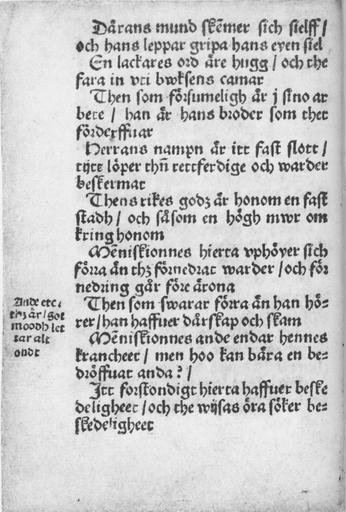 Dårans mund skẽmer sich sielff /
och hans leppar gripa hans eyen siel
En lackares ord åre hugg / och the
fara in vti bwksens camar
Then som försumeligh år j sino ar
bete / han år hans broder som thet
förderffuar
Herrans nampn år itt fast slott /
tijtt löper thñ rettferdige och warder
beskermat
Thens rikes godz år honom en fast
stadh / och såsom en högh mwr om
kring honom
Mẽniskionnes hierta vphöyer sich
förra ån thz förnedrat warder / och för
nedring går före årona
Then som swarar förra ån han hö-
rer / han haffuer dårskap och skam
Ande etc /
thz år / got
moodh let
tar alt
ondt
Mẽniskionnes ande endar hennes
krancheet / men hoo kan båra en be-
dröffuat anda ? /
Itt forstondigt hierta haffuer beske
deligheet / och the wijsas öra söker be-
skedeligheet